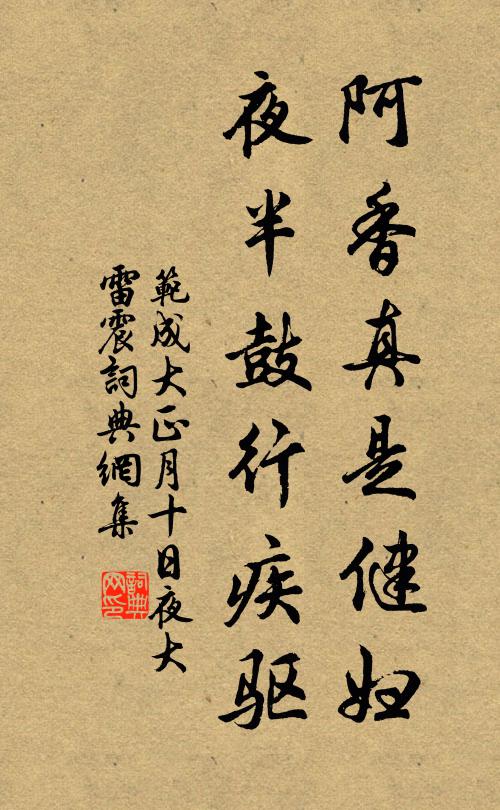 阿香真是健妇
夜半鼓行疾驱
範成大正月十日夜大
雷震詞典網集
詞典网印